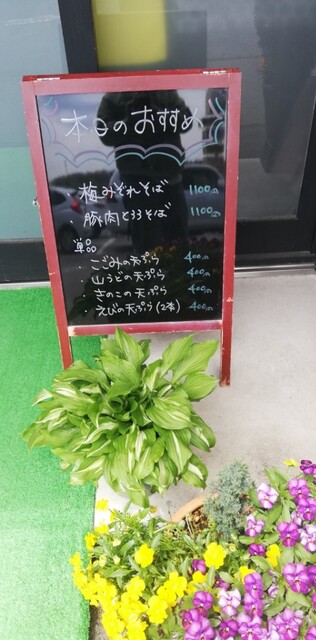 本日のおすすめ
・梅みぞれそば 1100円
・豚肉ととろろそば 1100円
単品
・こごみの天ぷら 400円
・山うどの天ぷら 400円
・きのこの天ぷら 400円
・えびの天ぷら(2本) 400円